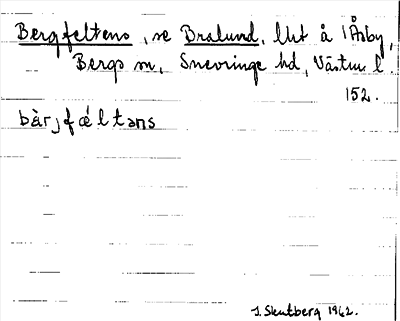 Bergfeltens, se Bralund, lht å 1 Åsby,
Bergs sn, Snevringe hd, Västm l.
152.
bàrjfǽltəns
J. Skutberg 1962.